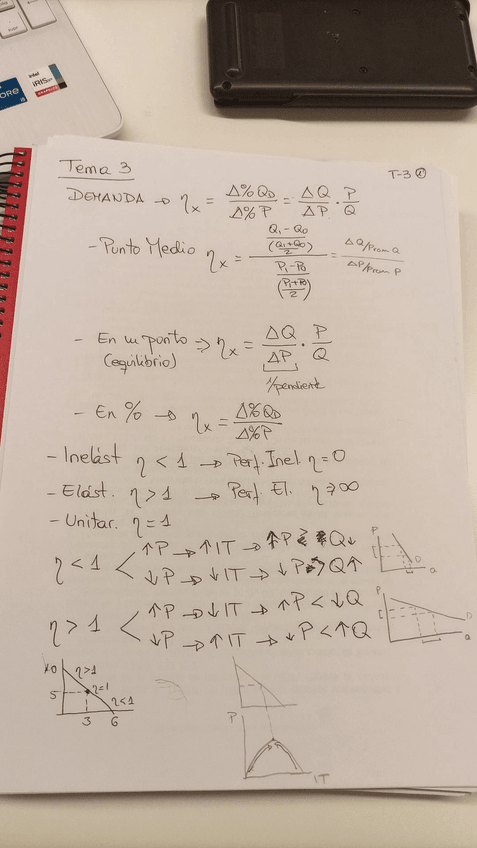 intel
IRIS xe
GRAPHICS
CORE
i5
Tema 3
T-3 ①
DEMANDA → ηx = Δ%QD / Δ%P = ΔQ/ΔP · P/Q
- Punto Medio ηx = ((Q1 - Q0) / ((Q1+Q0)/2)) / ((P1 - P0) / ((P1+P0)/2)) = (ΔQ/Prom Q) / (ΔP/Prom P)
- En un punto ⇒ ηx = ΔQ/ΔP · P/Q
(equilibrio)
1/pendiente
- En % → ηx = Δ%QD / Δ%P
- Inelást η < 1 → Perf. Inel η = 0
- Elást. η > 1 → Perf El. η → ∞
- Unitar. η = 1
η < 1 < ↑P → ↑IT → ↑P > Q↓
↓P → ↓IT → ↓P > Q↑
P
D
Q
η > 1 < ↑P → ↓IT → ↑P < ↓Q
↓P → ↑IT → ↓P < ↑Q
P
D
Q
10
η>1
5
η=1
η<1
3 6
P
IT